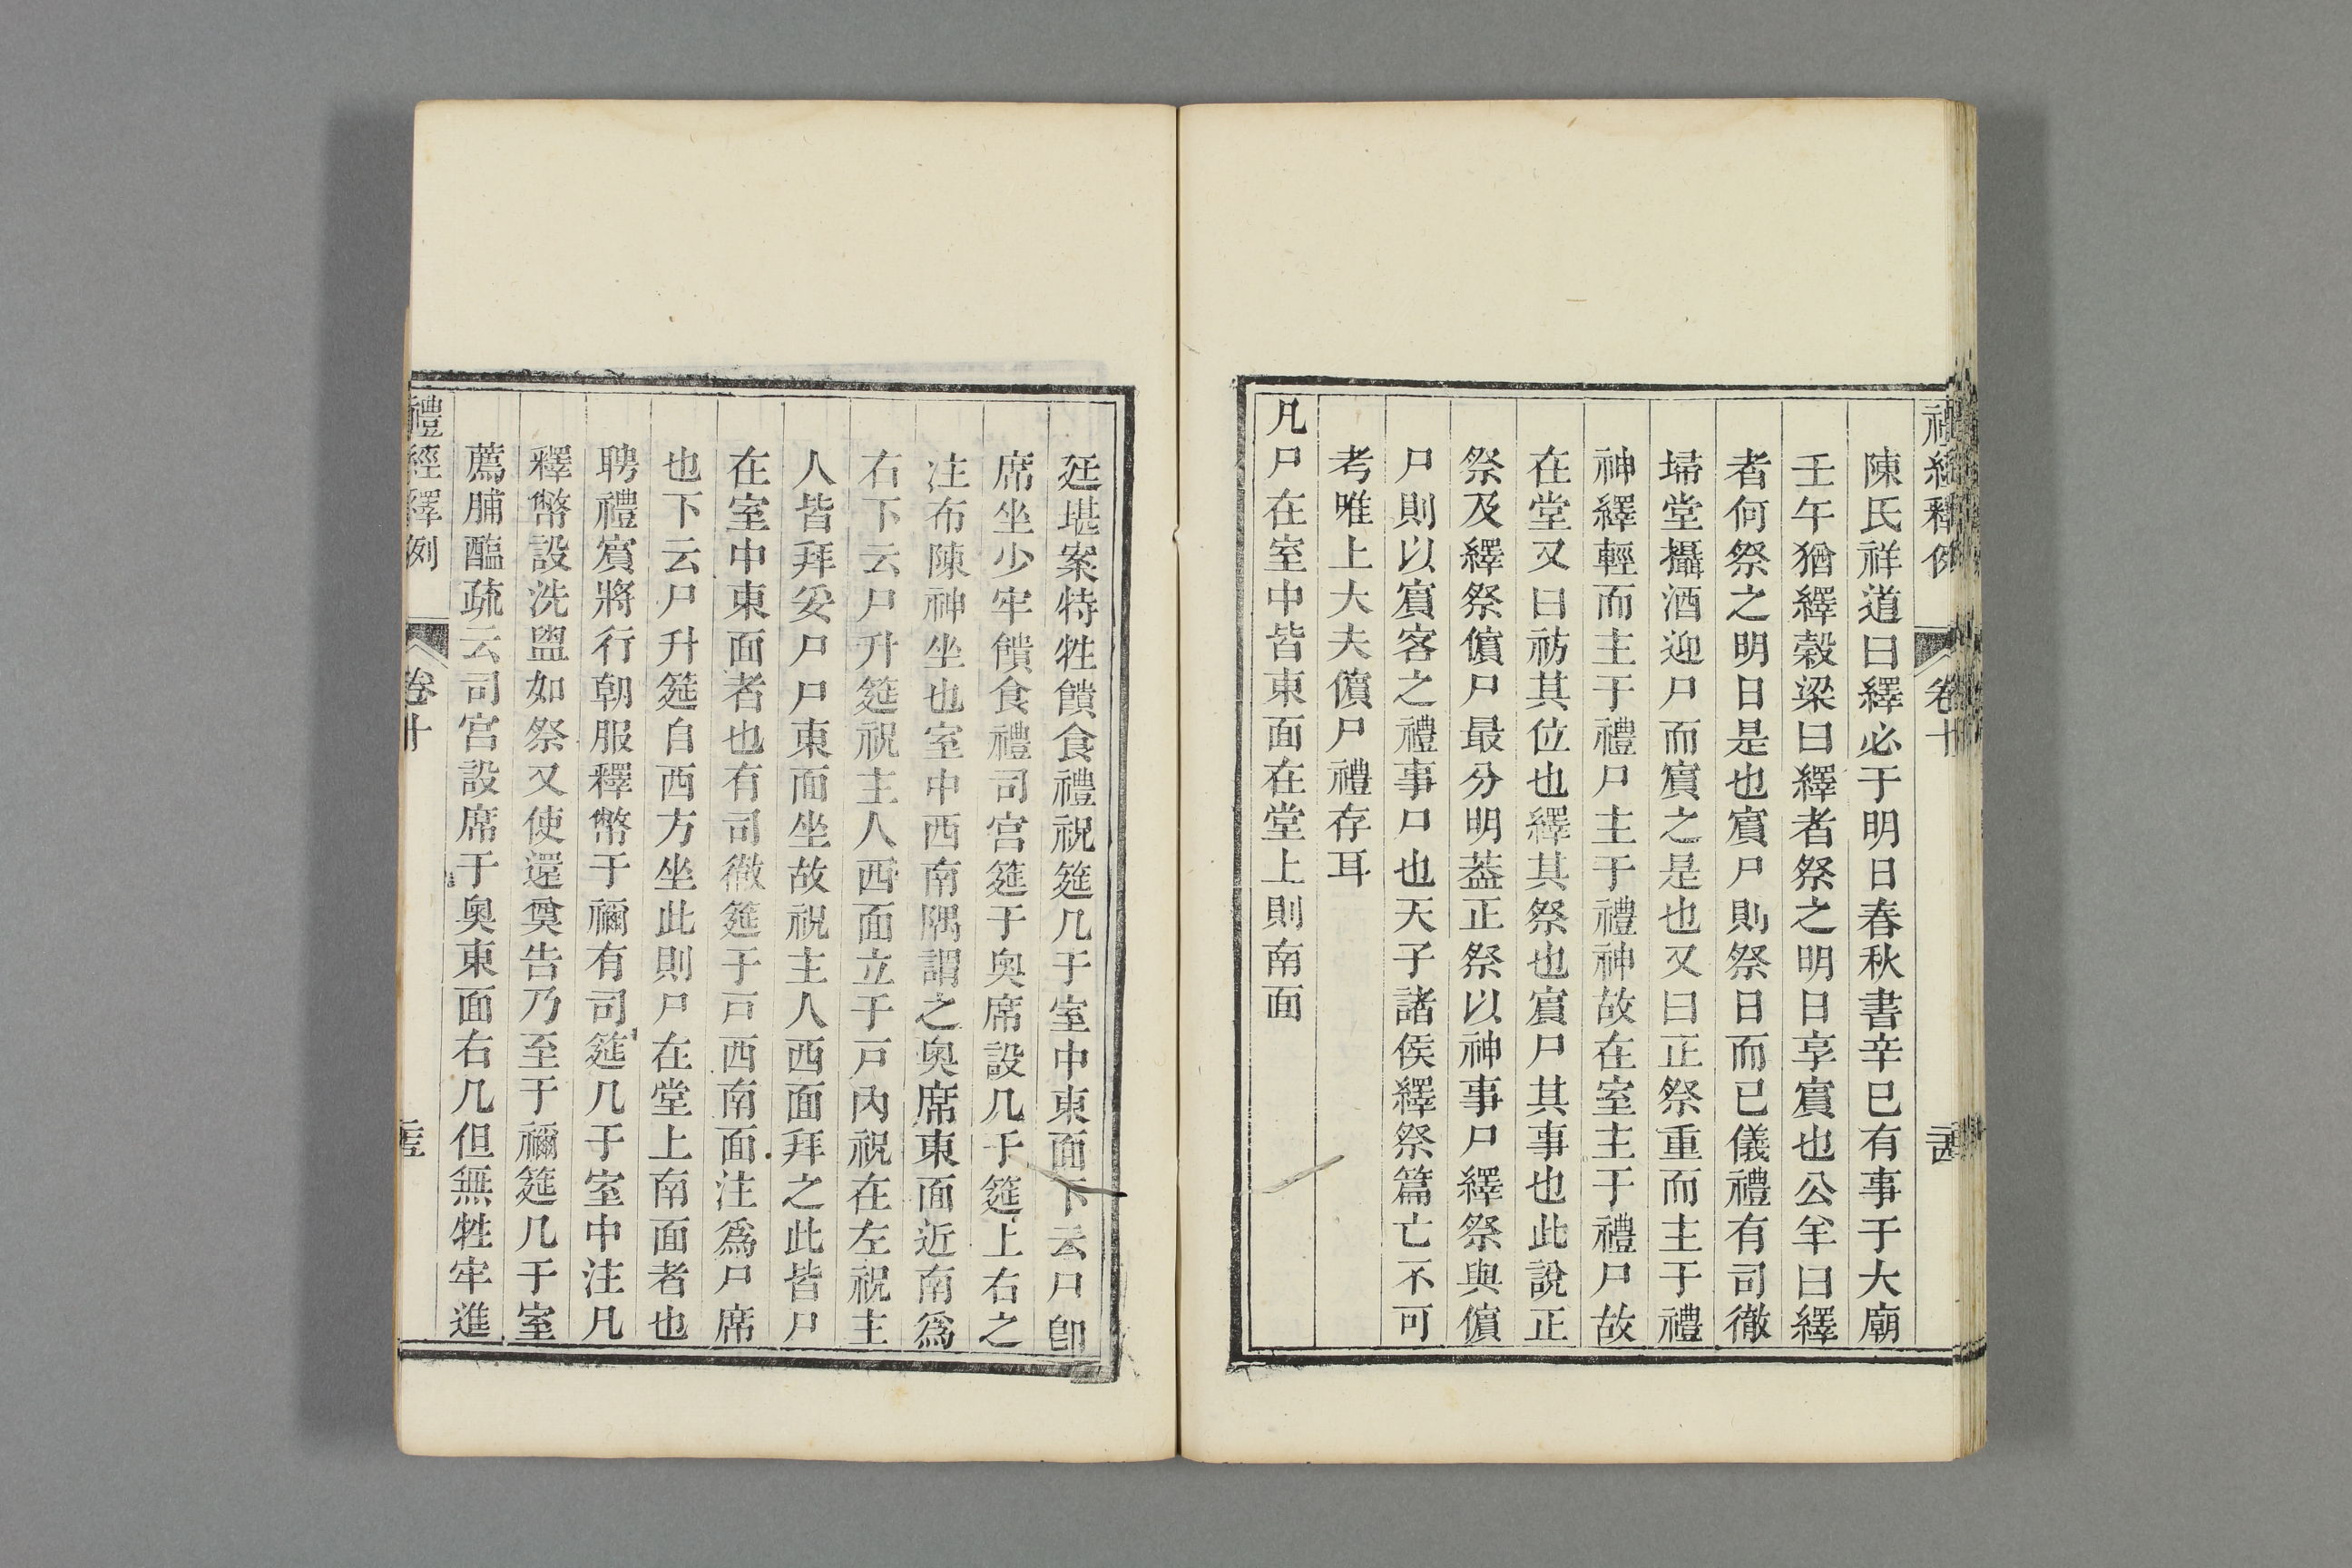 禮經釋例 卷十 二十四
陳氏祥道曰繹必于明日春秋書辛巳有事于大廟
壬午猶繹榖梁曰繹者祭之明日享賓也公羊曰繹
者何祭之明日是也賓尸則祭日而已儀禮有司徹
埽堂攝酒迎尸而賓之是也又曰正祭重而主于禮
神繹輕而主于禮尸主于禮神故在室主于禮尸故
在堂又曰祊其位也繹其祭也賓尸其事也此說正
祭及繹祭儐尸最分明葢正祭以神事尸繹祭與儐
尸則以賓客之禮事尸也天子諸侯繹祭篇亡不可
考唯上大夫儐尸禮存耳
凡尸在室中皆東面在堂上則南面
廷堪案特牲饋食禮祝筵几于室中東面下云尸卽
席坐少牢饋食禮司宮筵于奧席設几于筵上右之
注布陳神坐也室中西南隅謂之奧席東面近南爲
右下云尸升筵祝主人西面立于戸內祝在左祝主
人皆拜妥尸尸東面坐故祝主人西面拜之此皆尸
在室中東面者也有司徹筵于戸西南面注爲尸席
也下云尸升筵自西方坐此則尸在堂上南面者也
聘禮賓將行朝服釋幣于禰有司筵几于室中注凡
釋幣設洗盥如祭又使還奠告乃至于禰筵几于室
薦脯醢疏云司宮設席于奧東面右几但無牲牢進
禮經釋例 卷十